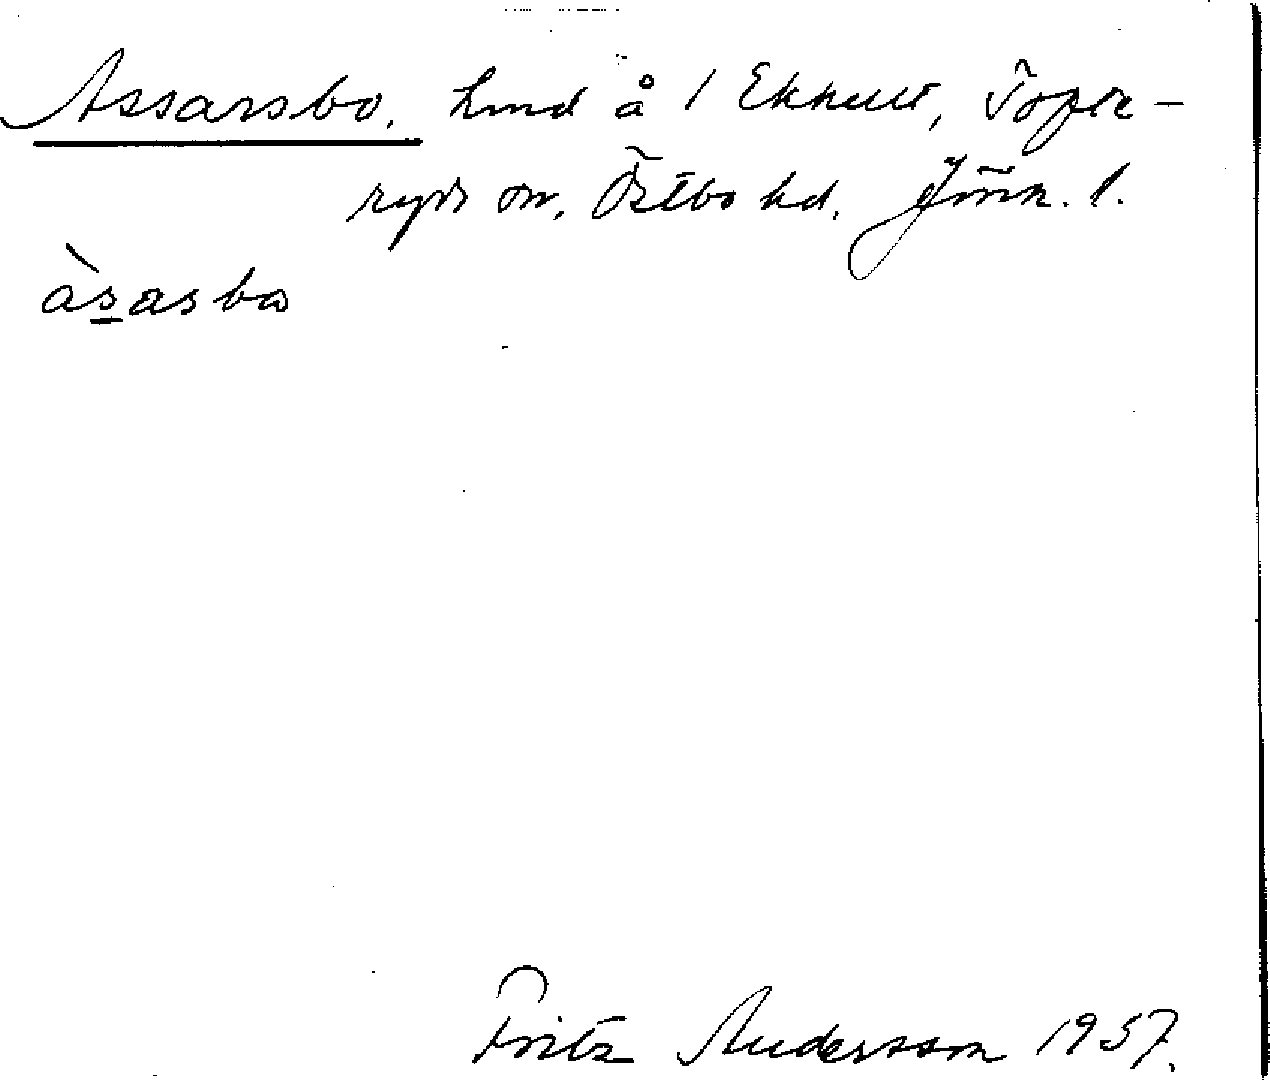 Assarsbo. Lmd å 1 Ekhult, Tofte-
ryds sn, Östbo hd. Jönk. l.
àsasbo
Fritz Andersson 1957.